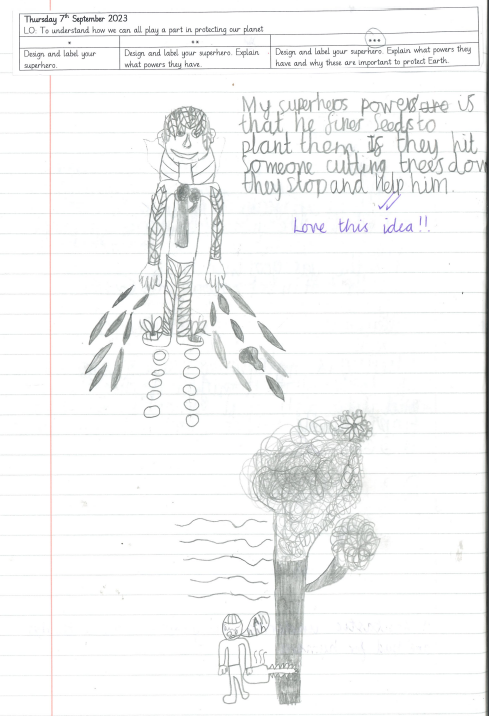 Thursday 7th September 2023
LO: To understand how we can all play a part in protecting our planet
* ** ***
Design and label your superhero.
Design and label your superhero. Explain what powers they have.
Design and label your superhero. Explain what powers they have and why these are important to protect Earth.
My superheros power is
that he fires seeds to
plant them. If they hit
someone cutting trees down
they stop and help him.
Love this idea!!